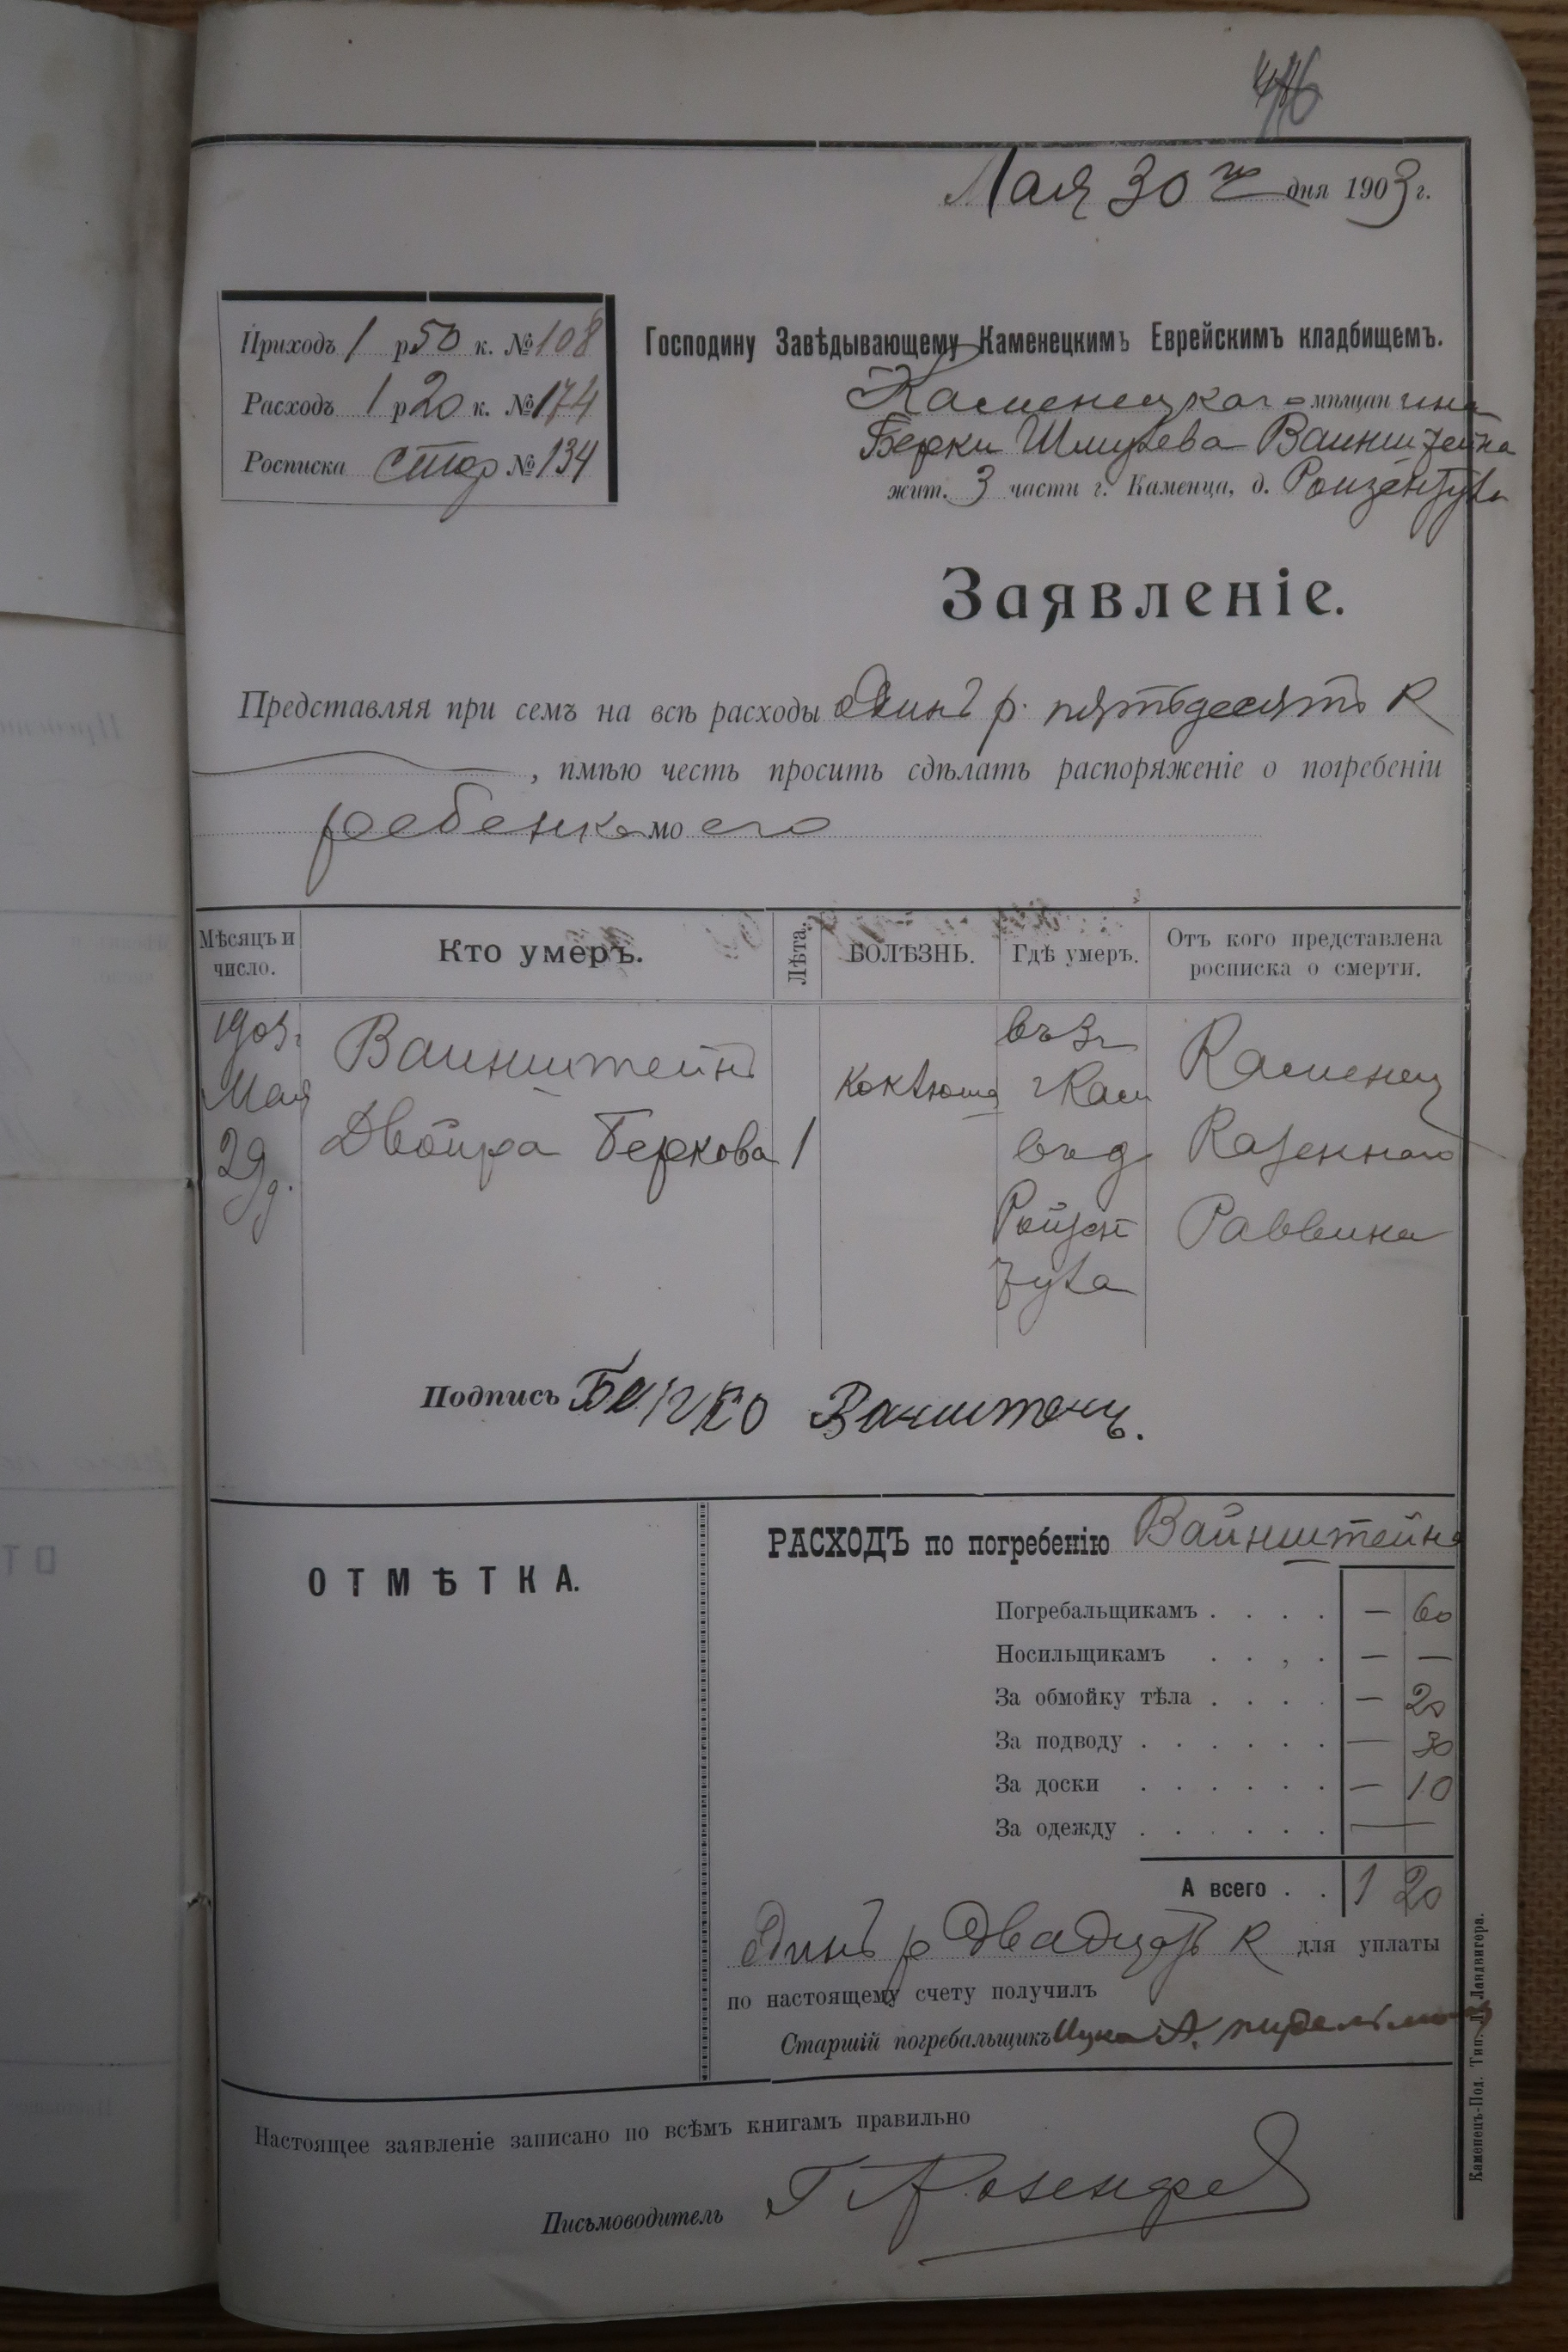 Мая 30 го дня 1903 г.
Приходъ 1 р 50 к. № 108
Расходъ 1 р 20 к. № 174
Росписка № 134
Господину Завѣдывающему Каменецкимъ Еврейскимъ кладбищемъ.
Каменецкаго мѣщанина
Берки Шмулева Ваинштейна
жит. 3 части г. Каменца, д.
Заявленіе.
Представляя при семъ на всѣ расходы одинъ р. пятьдесятъ к
, имѣю честь просить сдѣлать распоряженіе о погребеніи
ребенка моего
Мѣсяцъ и число.
Кто умеръ.
Лѣта.
БОЛѢЗНЬ.
Гдѣ умеръ.
Отъ кого представлена росписка о смерти.
1903 г
Мая
29 д.
Ваинштейнъ
Двойра Беркова
1
коклюша
въ 3 ч
г Кам
въ д
Каменец
Казеннаго
Раввина
Подпись Берко
ОТМѢТКА.
РАСХОДЪ по погребенію Вайнштейна
Погребальщикамъ . . . . — 60
Носильщикамъ . . , . — —
За обмойку тѣла . . . . — 20
За подводу . . . . . . — 30
За доски . . . . . . — 10
За одежду . . . . . . —
А всего . . 1 20
Одинъ р двадцать к для уплаты
по настоящему счету получилъ
Старшій погребальщикъ
Настоящее заявленіе записано по всѣмъ книгамъ правильно
Письмоводитель Г Розенфе
Каменецъ-Под. Тип. Л. Ландвигера.